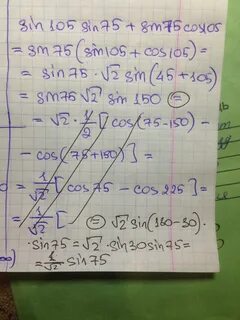 sin 105 sin 75 + sin 75 cos 105
= sin 75 (sin 105 + cos 105) =
= sin 75 · √2 sin (45 + 105)
= sin 75 √2 sin 150 =
= √2 · 1/2 [cos (75 - 150) -
- cos (75 + 150)] =
= 1/√2 [cos 75 - cos 225] =
= 1/√2 [
= √2 sin (180 - 30) ·
· sin 75 = √2 · sin 30 sin 75 =
= 1/√2 sin 75